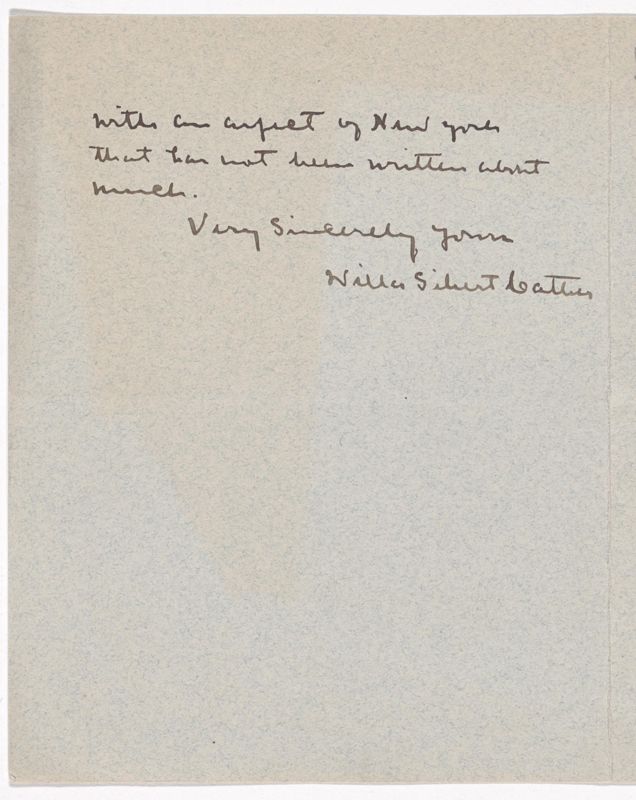 with an aspect of New York
that has not been written about
much.
Very Sincerely Yours
Willa Sibert Cather